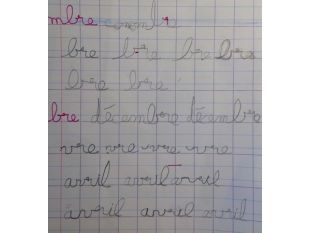 mbre
bre bre bre bre
bre bre
bre décembre décembre
vre vre vre vre
avril avril avril
avril avril avril